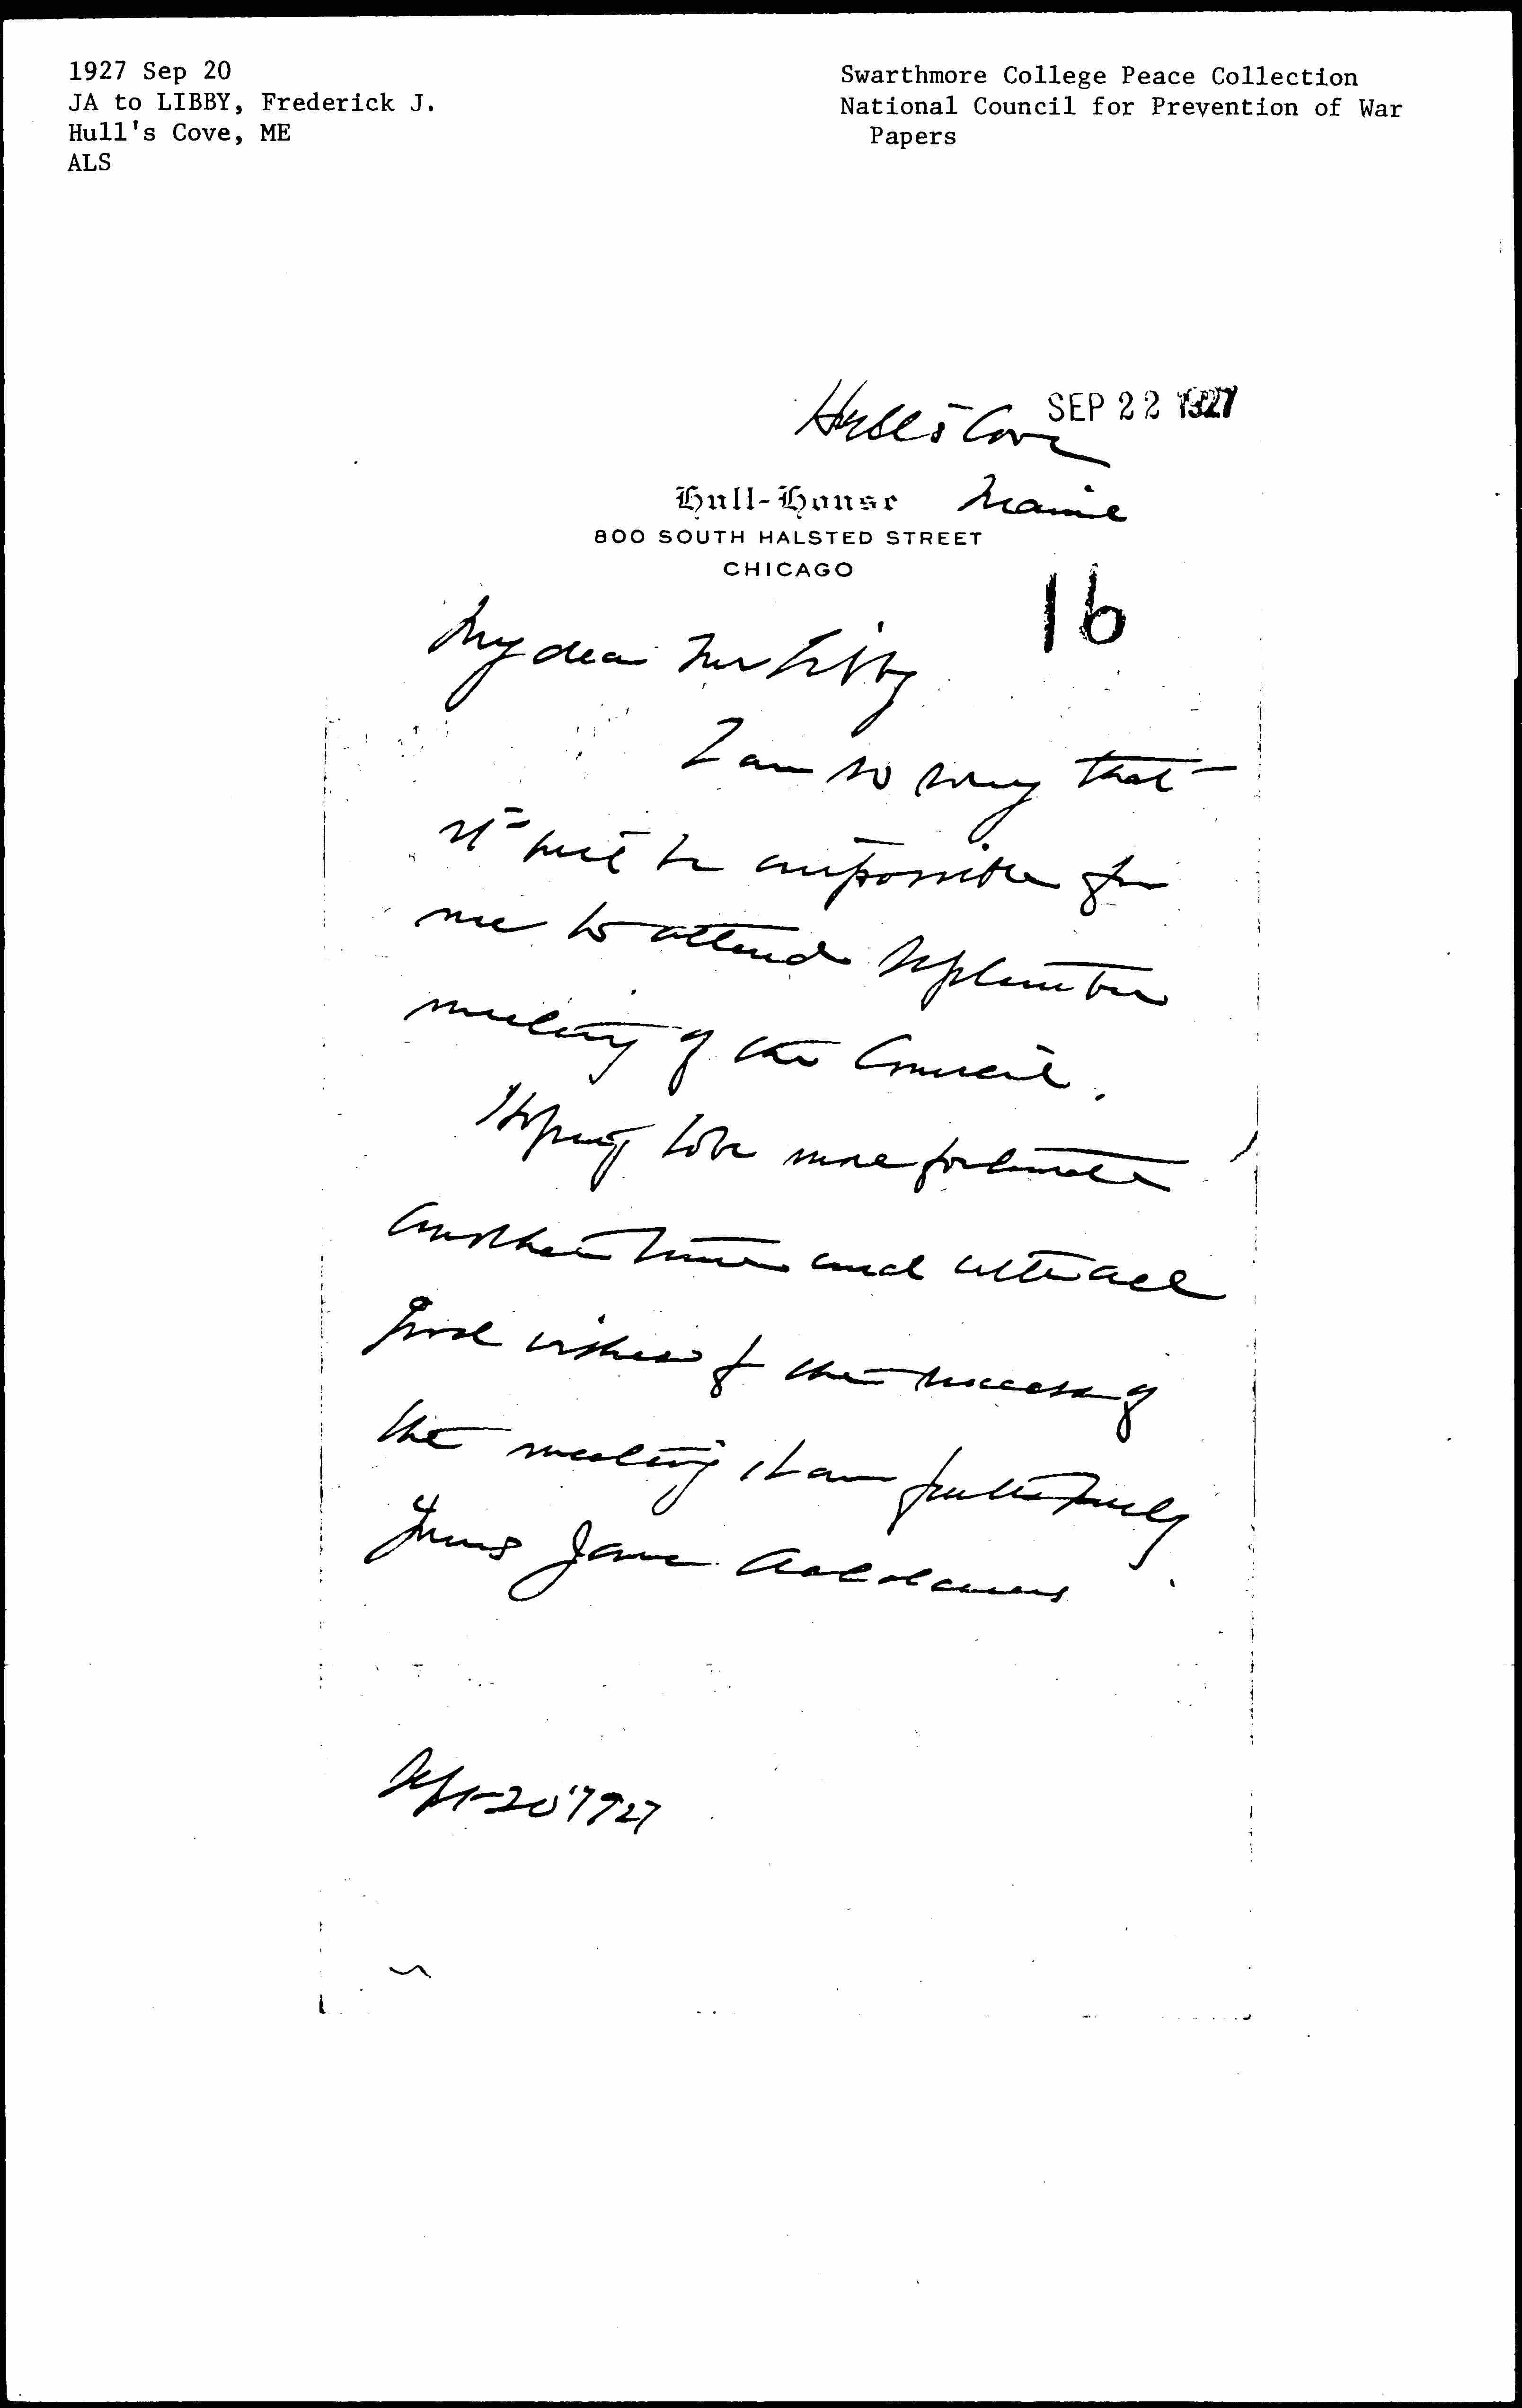 1927 Sep 20
JA to LIBBY, Frederick J.
Hull's Cove, ME
ALS
Swarthmore College Peace Collection
National Council for Prevention of War
Papers
SEP 22 1927
Hull's Cove
Maine
Hull-House
800 SOUTH HALSTED STREET
CHICAGO
16
My dear Mr Libby
I am so sorry that
it will be impossible for
me to attend September
meeting of the Council.
Hoping to be more fortunate
another time and with all
good wishes for the success of
the meeting, I am faithfully
yours Jane Addams
Sept 20" 1927